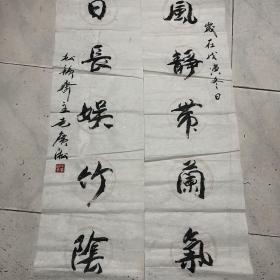 風靜帶蘭氣
歲在戊寅冬日
日長娛竹陰
松龄齋主毛廣淞